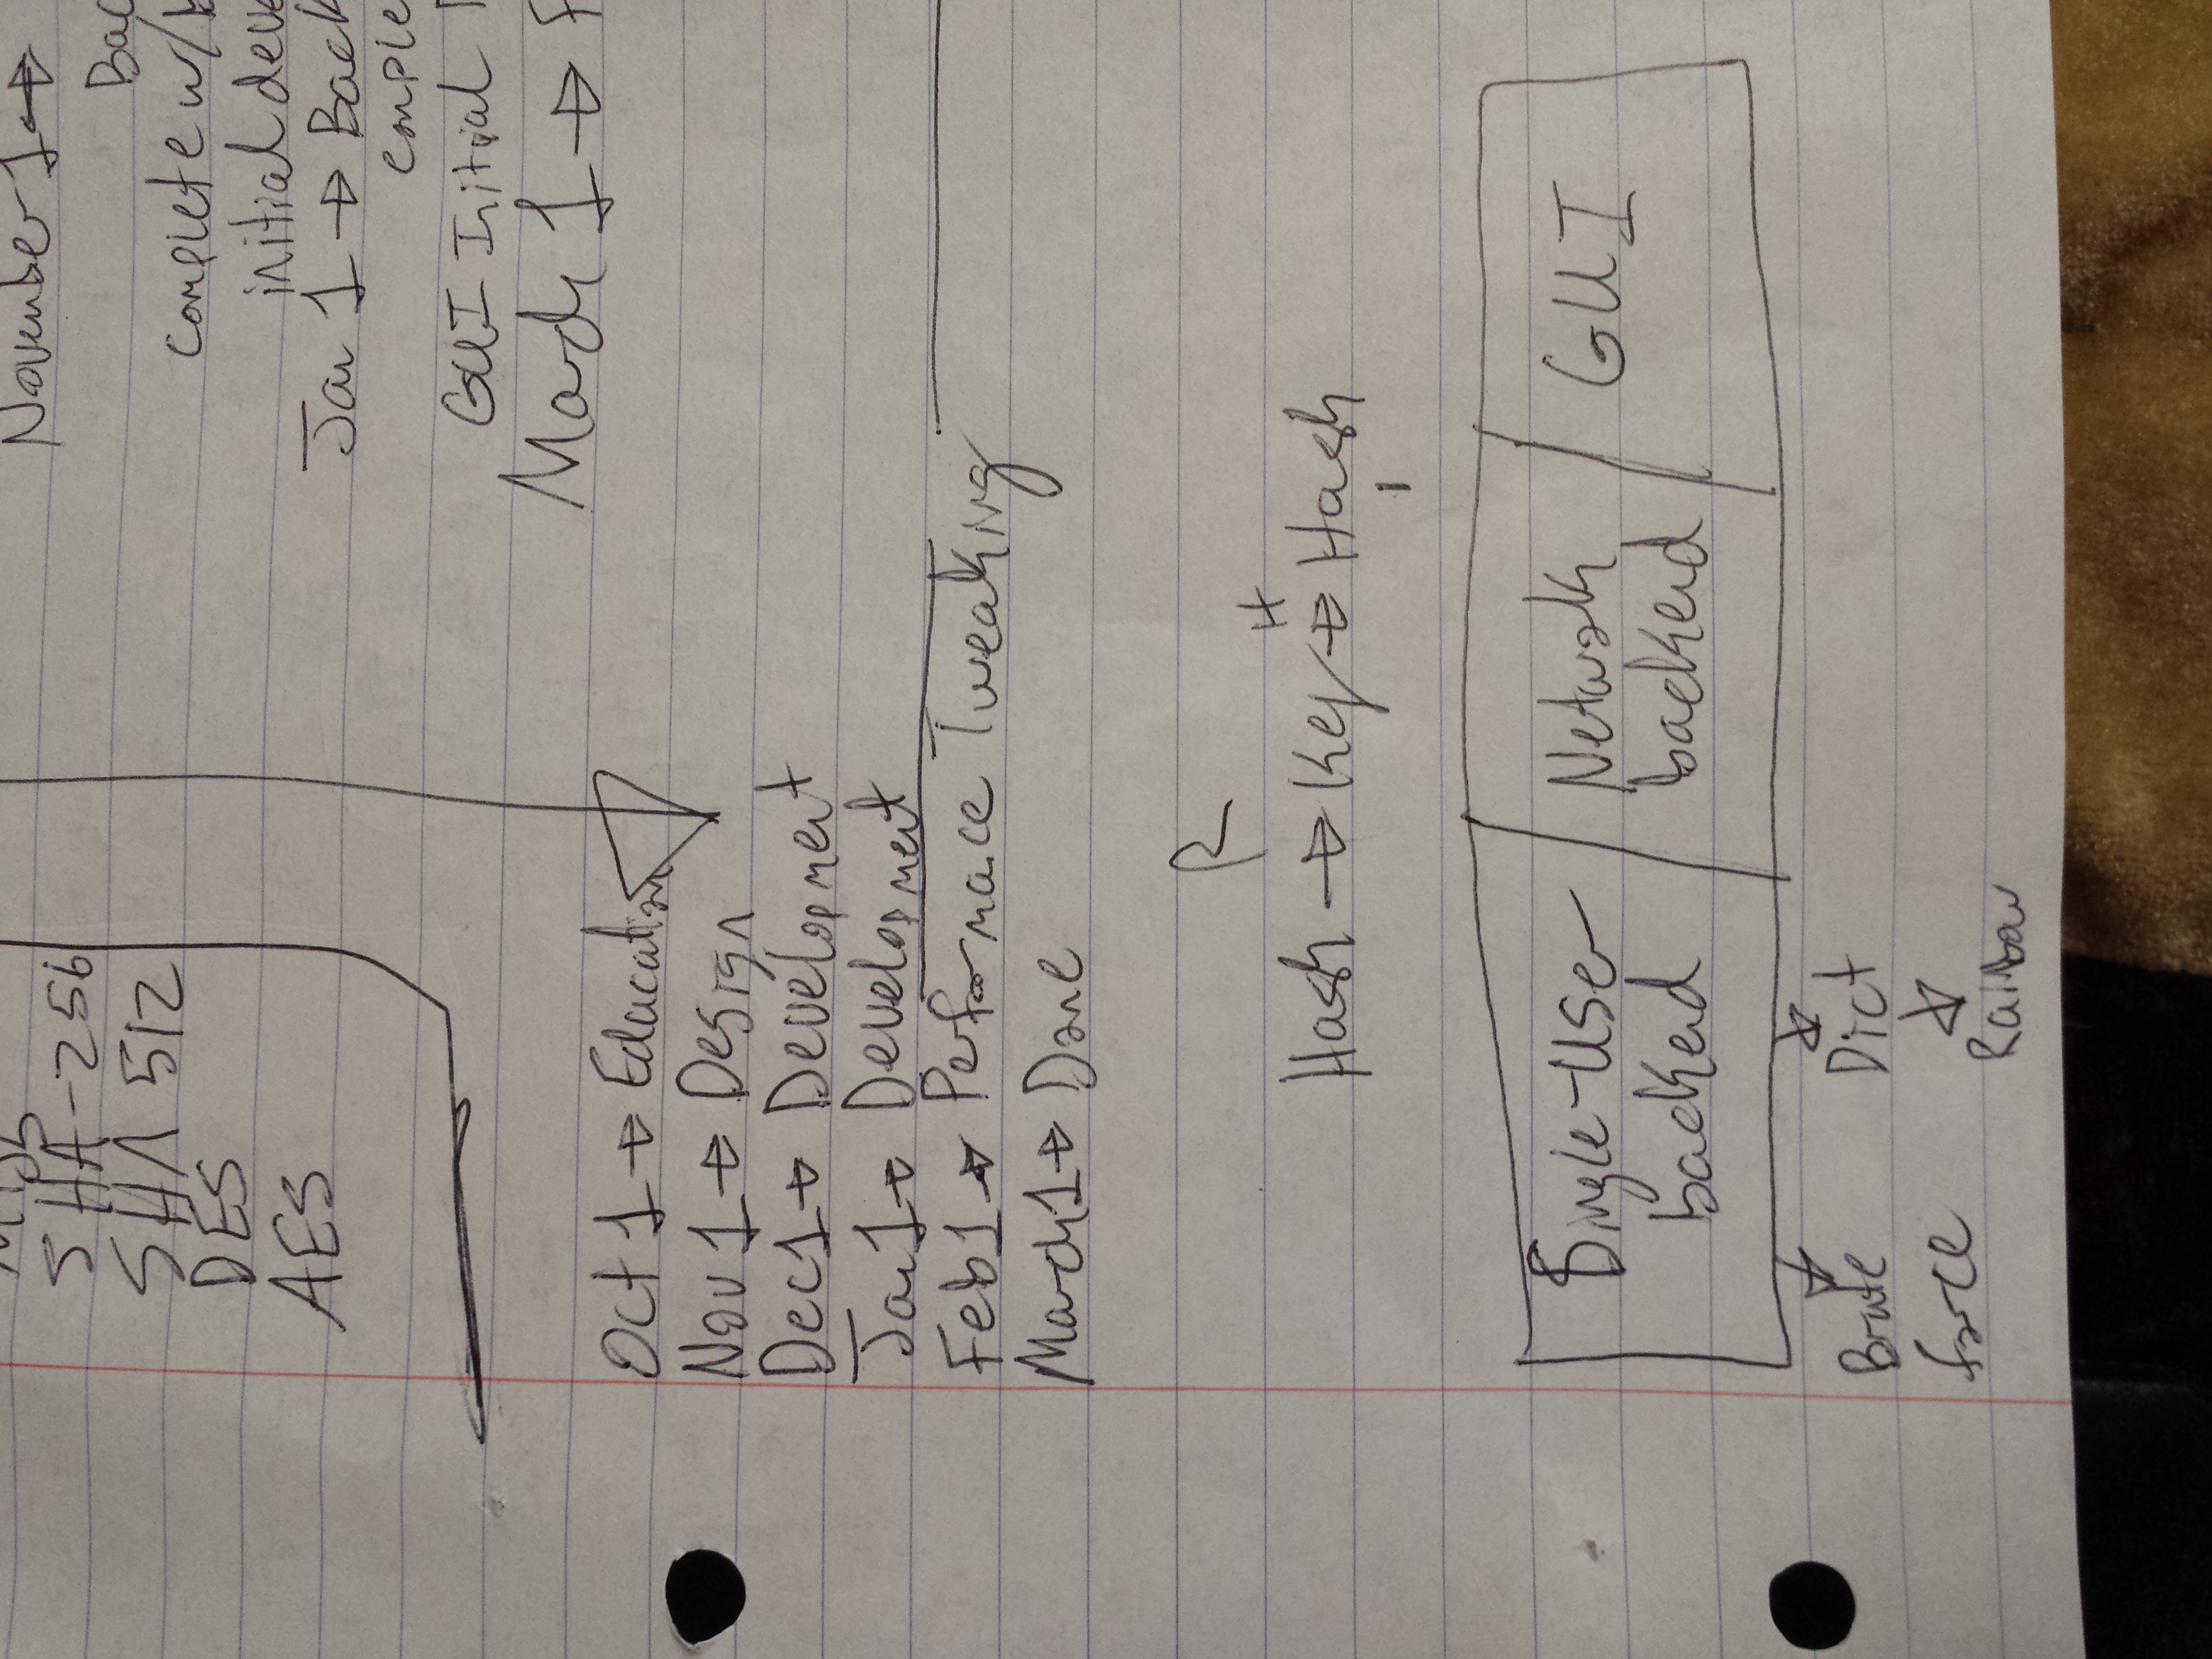 SHA-256
SHA 512
DES
AES
November 1 →
complete w/
initial
Jan 1 →
GUI Initial
March 1 →
Oct 1 → Education
Nov 1 → Design
Dec 1 → Development
Jan 1 → Development
Feb 1 → Performace Tweaking
March 1 → Done
R
H
Hash → Key → Hash
Single-User
backend
Network
backend
GUI
Brute
force
Dict
Rainbow